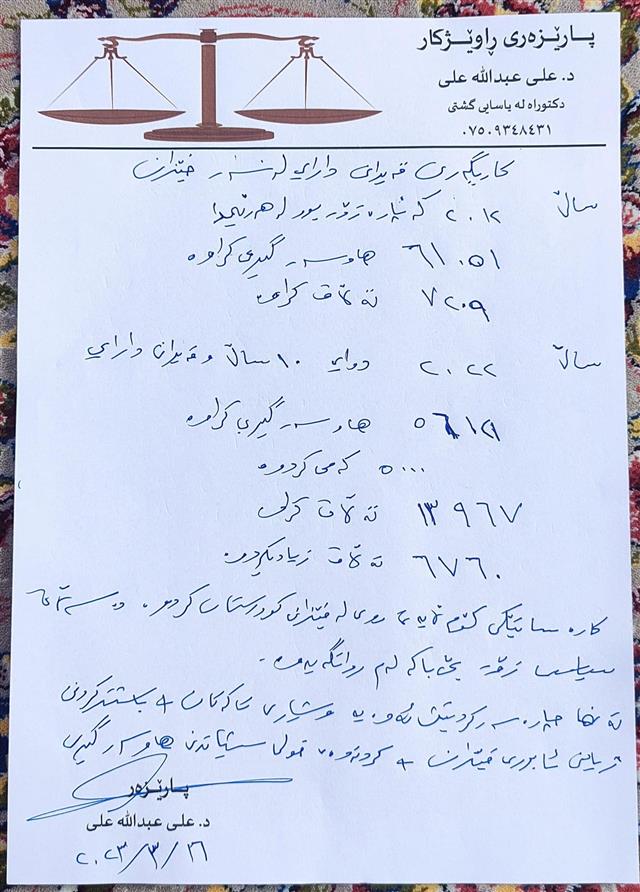 پارێزەری ڕاوێژکار
د. علی عبدالله علی
دکتوراە لە یاسایی گشتی
٠٧٥٠٩٣٤٨٤٣١
کاریگەری قەیرانی دارایی لەسەر خێزان
ساڵی ٢٠١٢ کە پارە زۆر بوو لە هەرێمدا
٦١٠٥١ هاوسەرگیری کراوە
٧٢٠٩ تەڵاق کراوە
ساڵی ٢٠٢٢ دوای ١٠ ساڵ و قەیرانی دارایی
هاوسەرگیری کراوە
٥٠٠٠ کەمی کردووە
١٣٩٦٧ تەڵاق کراوە
٦٧٦٠ تەڵاق زیادیکردووە
کارەساتێکی کۆمەڵایەتی ڕوی لە خێزانی کوردستان کردووە.
سیاسی با کە لەم ڕوانگەیەوە.
تەنها چارەسەرکردنیش ئەوەیە هوشیاری تاکەکان + باشترکردنی
ژیانی ئابوری خێزان + هاوسەرگیری
پارێزەر
د. علی عبدالله علی
٢٠٢٣/٣/٢٦